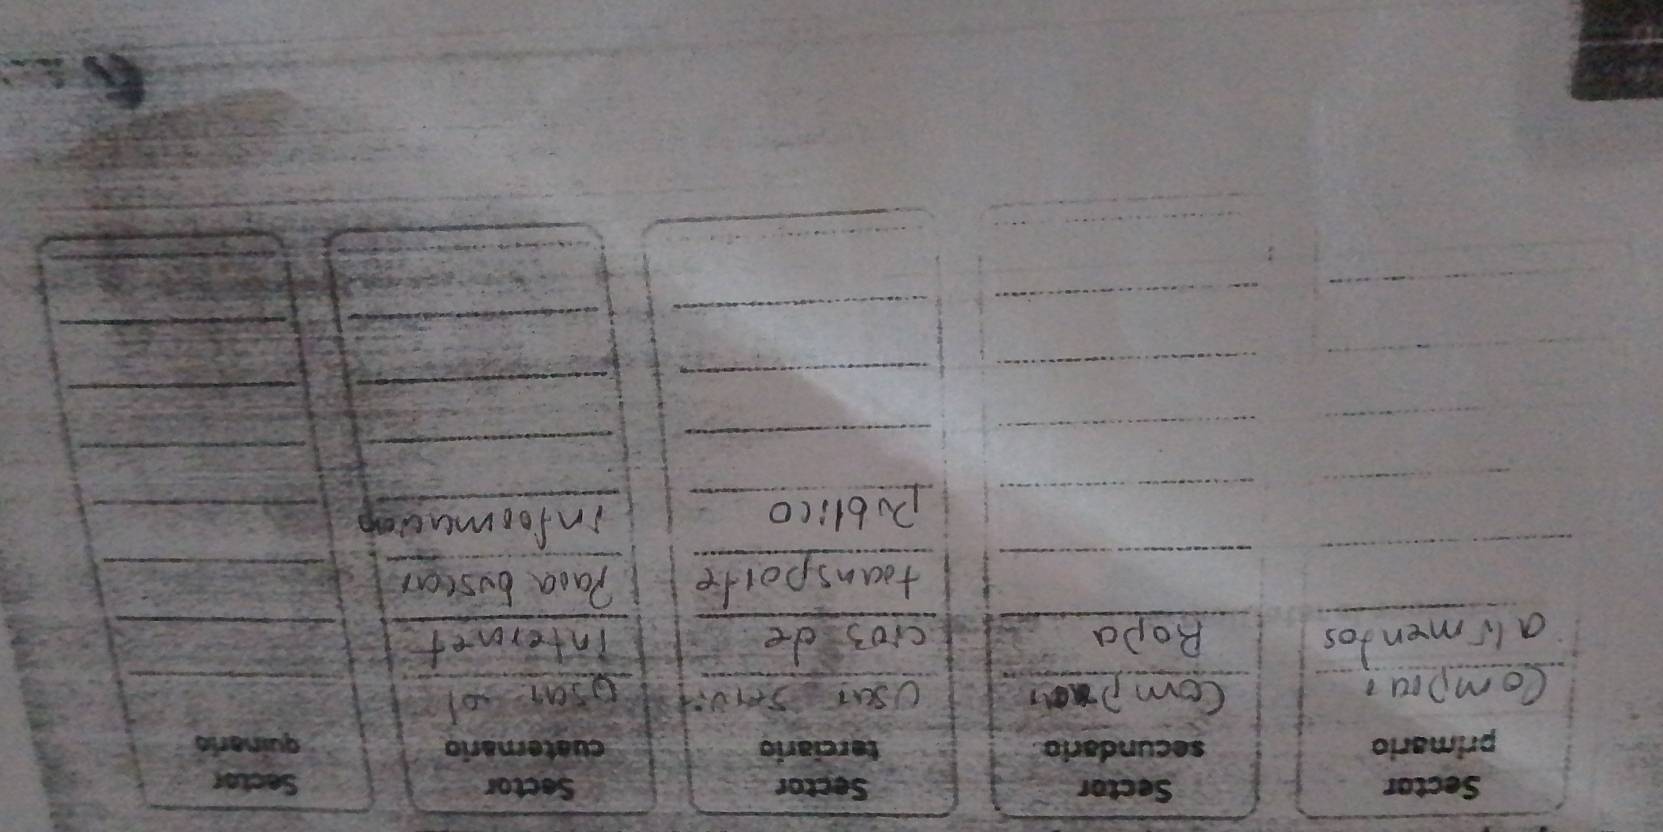 Sector
primario
Comprar
alimentos
Sector
secundario
Comprar
Ropa
Sector
terciario
Usar servi-
cios de
transporte
publico
Sector
cuaternario
Usar el
internet
Para buscar
informacion
Sector
quinario